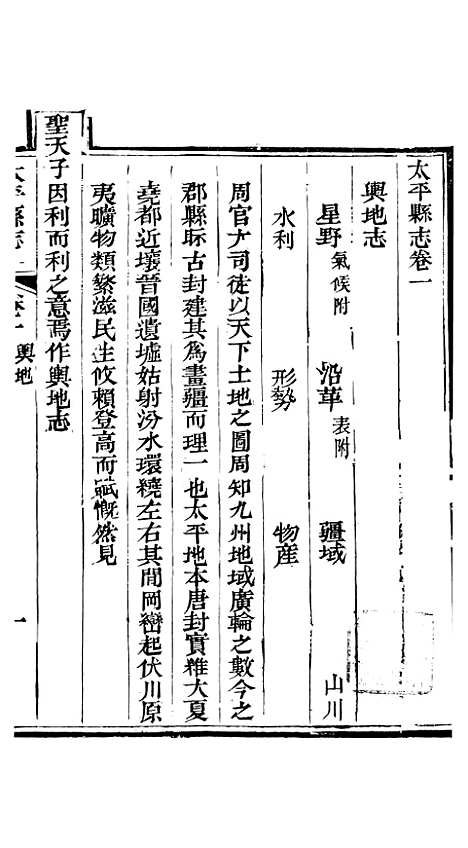 太平縣志卷一
輿地志
星野氣候附 沿革表附 疆域 山川
水利 形勢 物産
周官大司徒以天下土地之圖周知九州地域廣輪之數今之
郡縣眎古封建其為畫疆而理一也太平地本唐封實維大夏
堯都近壤晉國遺墟姑射汾水環繞左右其間岡巒起伏川原
夷曠物類繁滋民生攸賴登高而賦慨然見
聖天子因利而利之意焉作輿地志
太平縣志 卷一 輿地 一